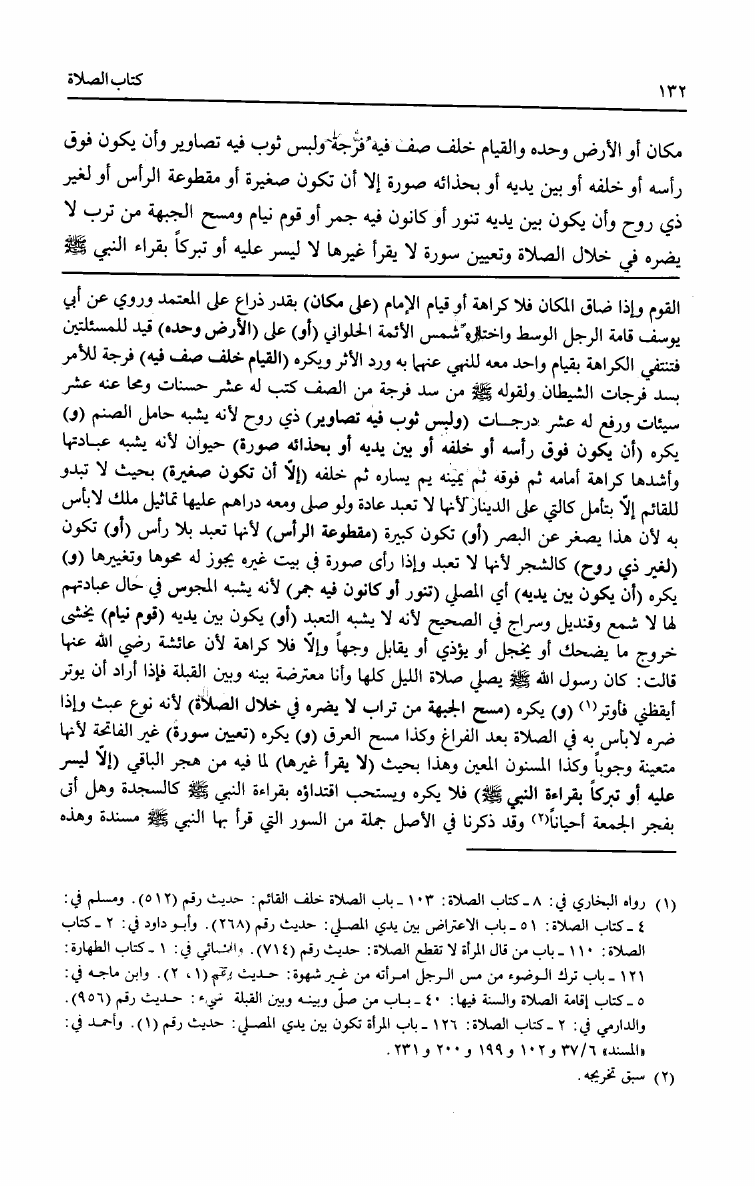 ١٣٢ كتاب الصلاة
مكان أو الأرض وحده والقيام خلف صف فيه فرجة ولبس ثوب فيه تصاوير وأن يكون فوق
رأسه أو خلفه أو بين يديه أو بحذائه صورة إلا أن تكون صغيرة أو مقطوعة الرأس أو لغير
ذي روح وأن يكون بين يديه تنور أو كانون فيه جمر أو قوم نيام ومسح الجبهة من ترب لا
يضره في خلال الصلاة وتعيين سورة لا يقرأ غيرها لا ليسر عليه أو تبركاً بقراء النبي ﷺ
القوم وإذا ضاق المكان فلا كراهة أو قيام الإمام (على مكان) بقدر ذراع على المعتمد وروي عن أبي
يوسف قامة الرجل الوسط واختاره شمس الأئمة الحلواني (أو) على (الأرض وحده) قيد للمسئلتين
فتنتفي الكراهة بقيام واحد معه للنهي عنهما به ورد الأثر ويكره (القيام خلف صف فيه) فرجة للأمر
بسد فرجات الشيطان ولقوله ﷺ من سد فرجة من الصف كتب له عشر حسنات ومحا عنه عشر
سيئات ورفع له عشر درجات (ولبس ثوب فيه تصاوير) ذي روح لأنه يشبه حامل الصنم (و)
يكره (أن يكون فوق رأسه أو خلفه أو بين يديه أو بحذائه صورة) حيوان لأنه يشبه عبادتها
وأشدها كراهة أمامه ثم فوقه ثم يمينه يم يساره ثم خلفه (إلّا أن تكون صغيرة) بحيث لا تبدو
للقائم إلّا بتأمل كالتي على الدينار لأنها لا تعبد عادة ولو صلى ومعه دراهم عليها تماثيل ملك لابأس
به لأن هذا يصغر عن البصر (أو) تكون كبيرة (مقطوعة الرأس) لأنها تعبد بلا رأس (أو) تكون
(لغير ذي روح) كالشجر لأنها لا تعبد وإذا رأى صورة في بيت غيره يجوز له محوها وتغييرها (و)
يكره (أن يكون بين يديه) أي المصلي (تنور أو كانون فيه جمر) لأنه يشبه المجوس في حال عبادتهم
لها لا شمع وقنديل وسراج في الصحيح لأنه لا يشبه التعبد (أو) يكون بين يديه (قوم نيام) يخشى
خروج ما يضحك أو يخجل أو يؤذي أو يقابل وجهاً وإلّا فلا كراهة لأن عائشة رضي الله عنها
قالت: كان رسول الله ﷺ يصلي صلاة الليل كلها وأنا معترضة بينه وبين القبلة فإذا أراد أن يوتر
أيقظني فأوتر(١) (و) يكره (مسح الجبهة من تراب لا يضره في خلال الصلاة) لأنه نوع عبث وإذا
ضره لابأس به في الصلاة بعد الفراغ وكذا مسح العرق (و) يكره (تعيين سورة) غير الفاتحة لأنها
متعينة وجوباً وكذا المسنون المعين وهذا بحيث (لا يقرأ غيرها) لما فيه من هجر الباقي (إلّا ليسر
عليه أو تبركاً بقراءة النبي ﷺ) فلا يكره ويستحب اقتداؤه بقراءة النبي ﷺ كالسجدة وهل أتى
بفجر الجمعة أحياناً(٢) وقد ذكرنا في الأصل جملة من السور التي قرأ بها النبي ﷺ مسندة وهذه
(١) رواه البخاري في: ٨ ـ كتاب الصلاة: ١٠٣ ـ باب الصلاة خلف القائم: حديث رقم (٥١٢). ومسلم في:
٤ ـ كتاب الصلاة: ٥١ ـ باب الاعتراض بين يدي المصلي: حديث رقم (٢٦٨). وأبو داود في: ٢ ـ كتاب
الصلاة: ١١٠ ـ باب من قال المرأة لا تقطع الصلاة: حديث رقم (٧١٤). والنسائي في: ١ ـ كتاب الطهارة:
١٢١ ـ باب ترك الوضوء من مس الرجل امرأته من غير شهوة: حديث رقم (١، ٢). وابن ماجه في:
٥ ـ كتاب إقامة الصلاة والسنة فيها: ٤٠ ـ باب من صلّى وبينه وبين القبلة شيء: حديث رقم (٩٥٦).
والدارمي في: ٢ ـ كتاب الصلاة: ١٢٦ ـ باب المرأة تكون بين يدي المصلي: حديث رقم (١). وأحمد في:
«المسند» ٣٧/٦ و ١٠٢ و ١٩٩ و ٢٠٠ و ٢٣١.
(٢) سبق تخريجه.